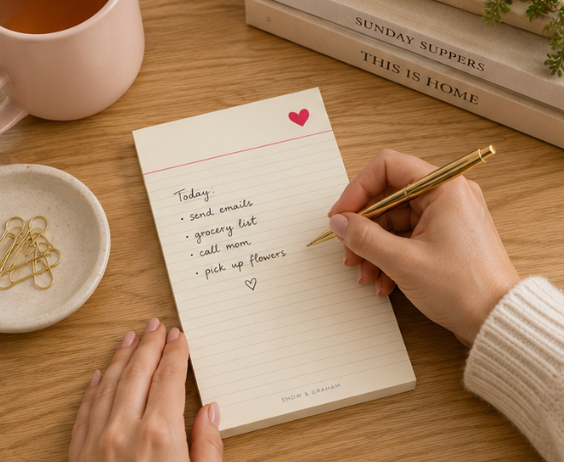 SUNDAY SUPPERS
THIS IS HOME
Today:
• send emails
• grocery list
• call mom
• pick up flowers
SHOW & GRAHAM